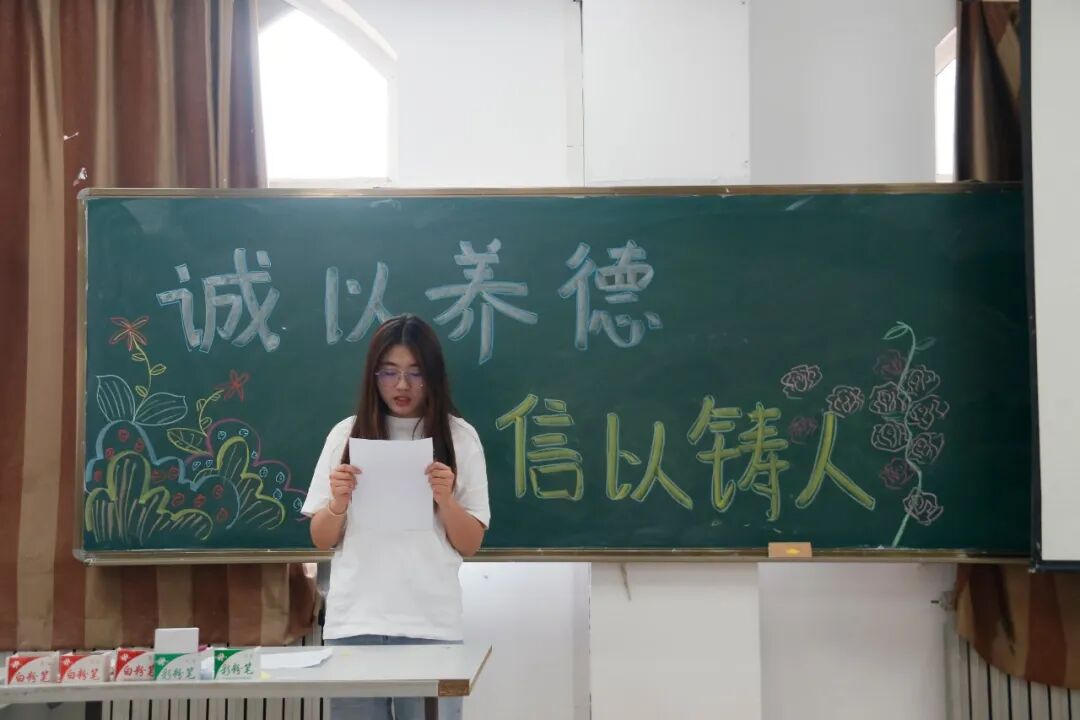 诚以养德
信以铸人
白粉笔
白粉笔
白粉笔
彩粉笔
彩粉笔